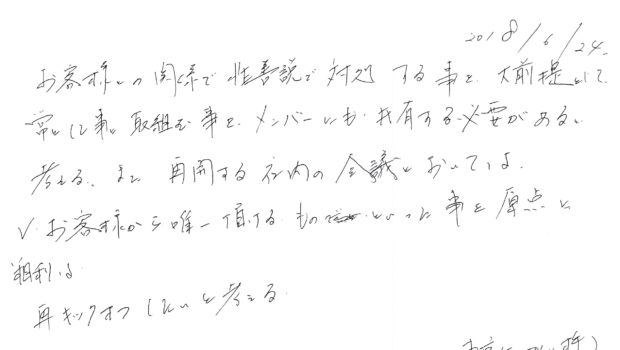 2018/6/24.
お客様との関係で 性善説で 対処 する事を 大前提として
常とした事に取組む事を、メンバーにも 共有する必要がある、
考える、また 再開する 社内の会議においては、
✓ お客様から唯一頂ける もの といった 事を 原点に
粗利は
再キックオフ したいと考える